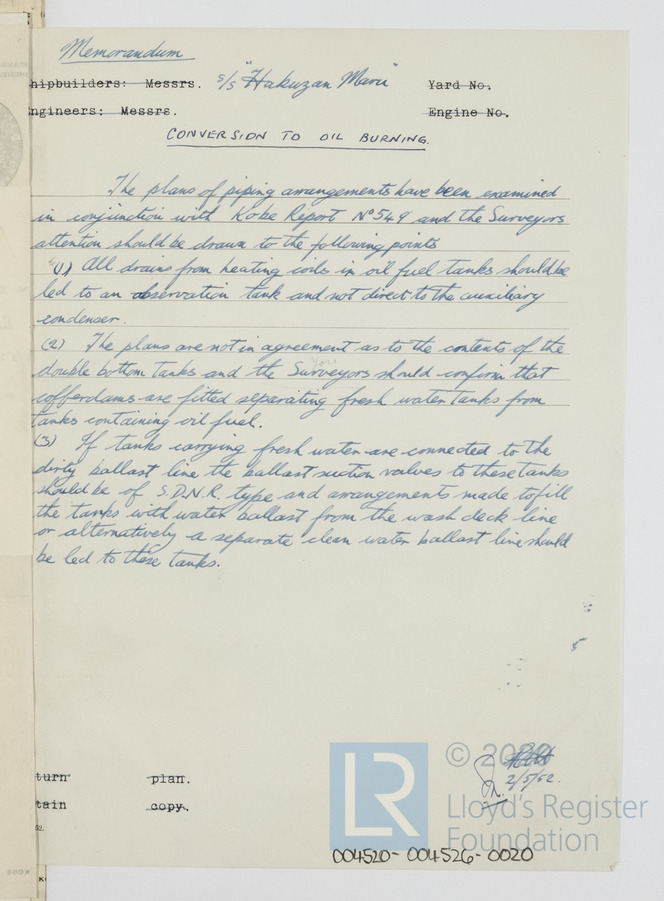 Memorandum
hipbuilders: Messrs. s/s "Hakuzan Maru" Yard No.
ngineers: Messrs. Engine No.
CONVERSION TO OIL BURNING.
The plans of piping arrangements have been examined
in conjunction with Kobe Report No 549 and the Surveyors
attention should be drawn to the following points
(1) All drains from heating coils in oil fuel tanks should be
led to an observation tank and not direct to the auxiliary
condenser.
(2) The plans are not in agreement as to the contents of the
double bottom tanks and the Surveyors should confirm that
cofferdams are fitted separating fresh water tanks from
tanks containing oil fuel.
(3) If tanks carrying fresh water are connected to the
dirty ballast line the ballast suction valves to these tanks
should be of S.D.N.R. type and arrangements made to fill
the tanks with water ballast from the wash deck line
or alternatively a separate clean water ballast line should
be led to these tanks.
2/5/52.
turn plan.
tain copy.
52.
LR
© 2020
Lloyd's Register
Foundation
004520-004526-0020